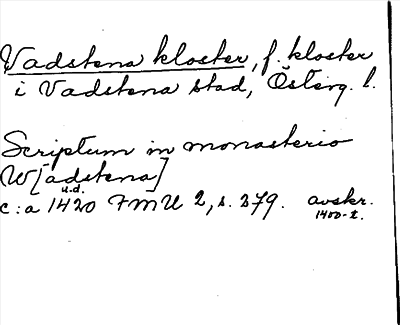 Vadstena kloster, f. kloster
i Vadstena stad, Österg. l.
Scriptum in monasterio
W[adstena]
u.d.
c:a 1420 FMU 2, s. 379. avskr.
1400-t.